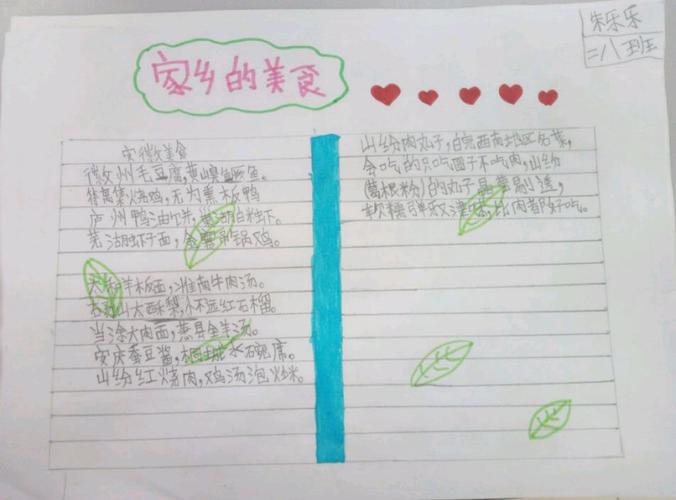 朱乐乐
二八班
家乡的美食
安徽美食
徽州毛豆腐,黄山臭鳜鱼。
符离集烧鸡,无为熏板鸭
庐州鸭油饼,巢湖白米虾。
芜湖虾子面,
锅鸡。
太和羊板面,淮南牛肉汤。
砀山大酥梨,怀远红石榴。
当涂大肉面,萧县全羊汤。
安庆蚕豆酱,桐城水碗席。
山纷红烧肉,鸡汤泡炒米。
山纷肉丸子,皖西南地区名菜,
会吃的只吃圆子不吃肉,山纷
(葛根粉)的丸子
剔透,
软糯弹
比肉都好吃。